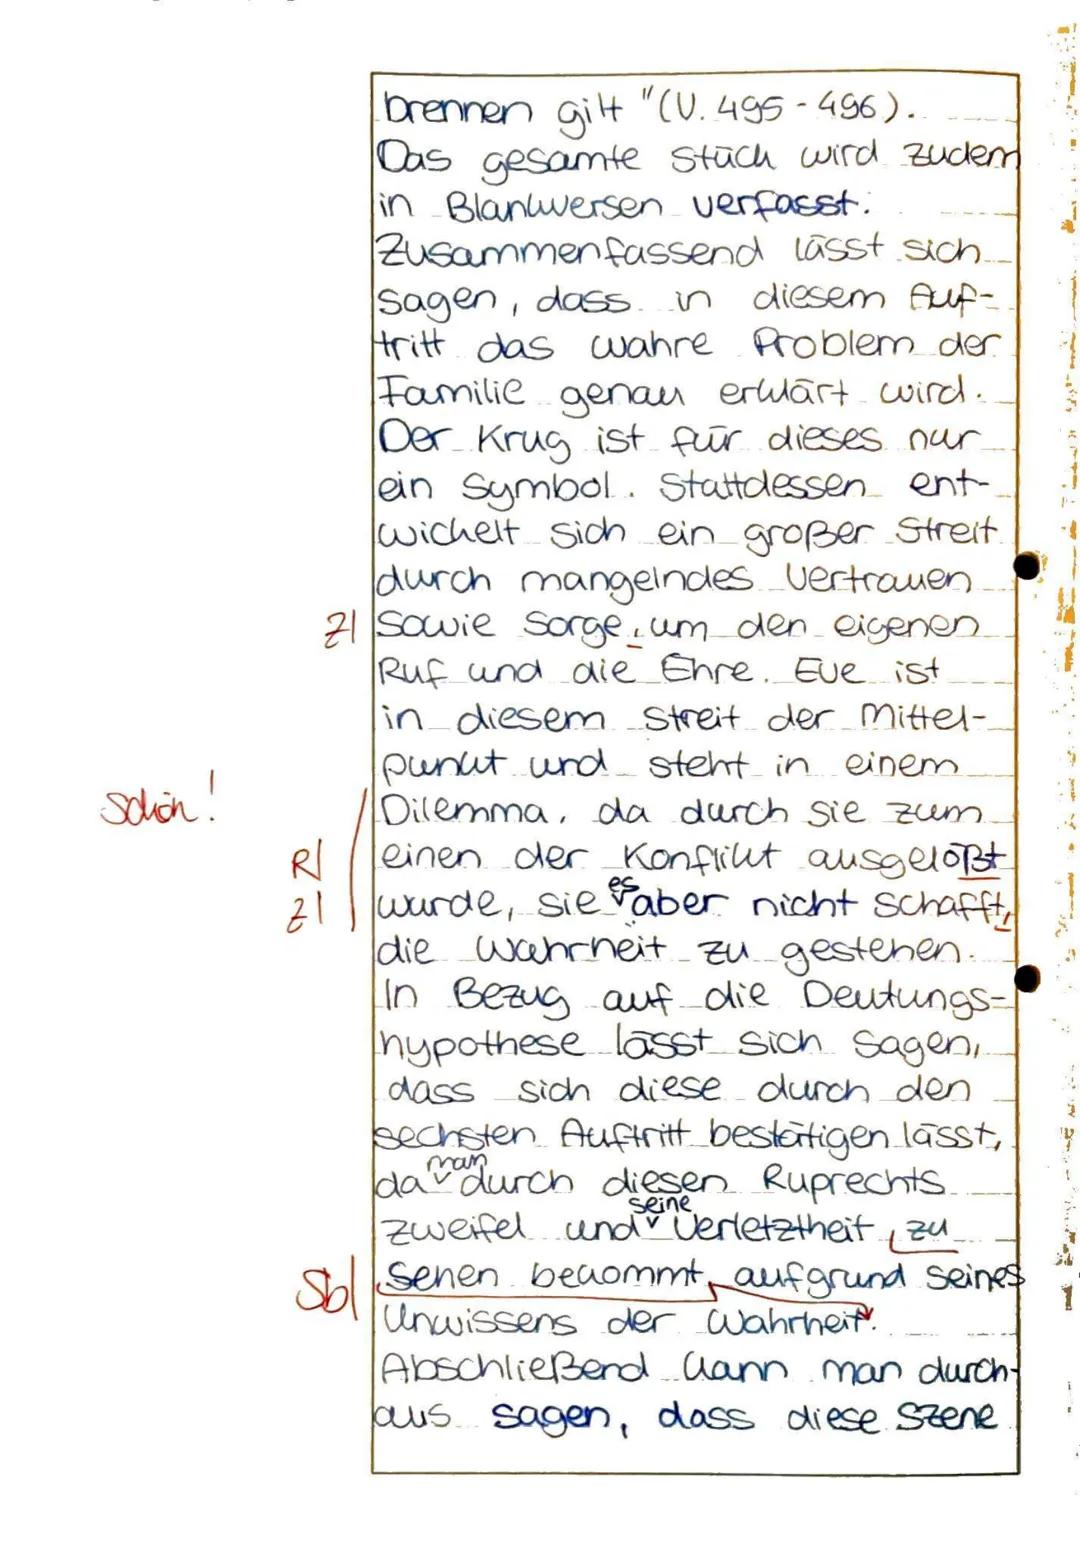 brennen gilt "(V. 495 - 496).
Das gesamte Stück wird zudem
in Blankversen verfasst.
Zusammenfassend lässt sich
sagen, dass in diesem Auf-
tritt das wahre Problem der
Familie genau erklärt wird.
Der Krug ist für dieses nur
ein Symbol. Stattdessen ent-
wickelt sich ein großer Streit
durch mangelndes Vertrauen
Z| sowie Sorge, um den eigenen
Ruf und die Ehre. Eve ist
in diesem Streit der Mittel-
punkt und steht in einem
Schön! Dilemma, da durch sie zum
R| einen der Konflikt ausgelößt
Z| wurde, sie es aber nicht schafft,
die Wahrheit zu gestehen.
In Bezug auf die Deutungs-
hypothese lässt sich sagen,
dass sich diese durch den
sechsten Auftritt bestätigen lässt,
da man durch diesen Ruprechts
Zweifel und seine Verletztheit, zu
Sb| sehen bekommt, aufgrund seines
Unwissens der Wahrheit.
Abschließend kann man durch-
aus sagen, dass diese Szene